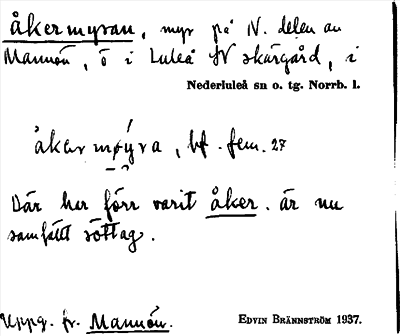 åkermyran, myr på N. delen av
Mannön, ö i Luleå N skärgård, i
Nederluleå sn o. tg. Norrb. l.
åkermýra, bf. fem. 27
Där har förr varit åker. är nu
samfällt
Uppg. fr. Mannön.
EDVIN BRÄNNSTRÖM 1937.